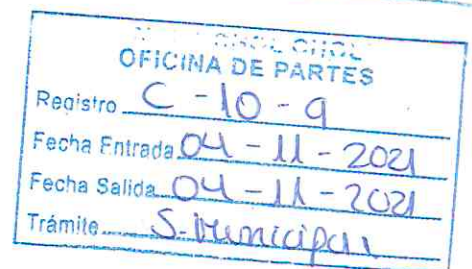 OFICINA DE PARTES
Registro C - 10 - 9
Fecha Entrada 04 - 11 - 2021
Fecha Salida 04 - 11 - 2021
Trámite S. Municipal